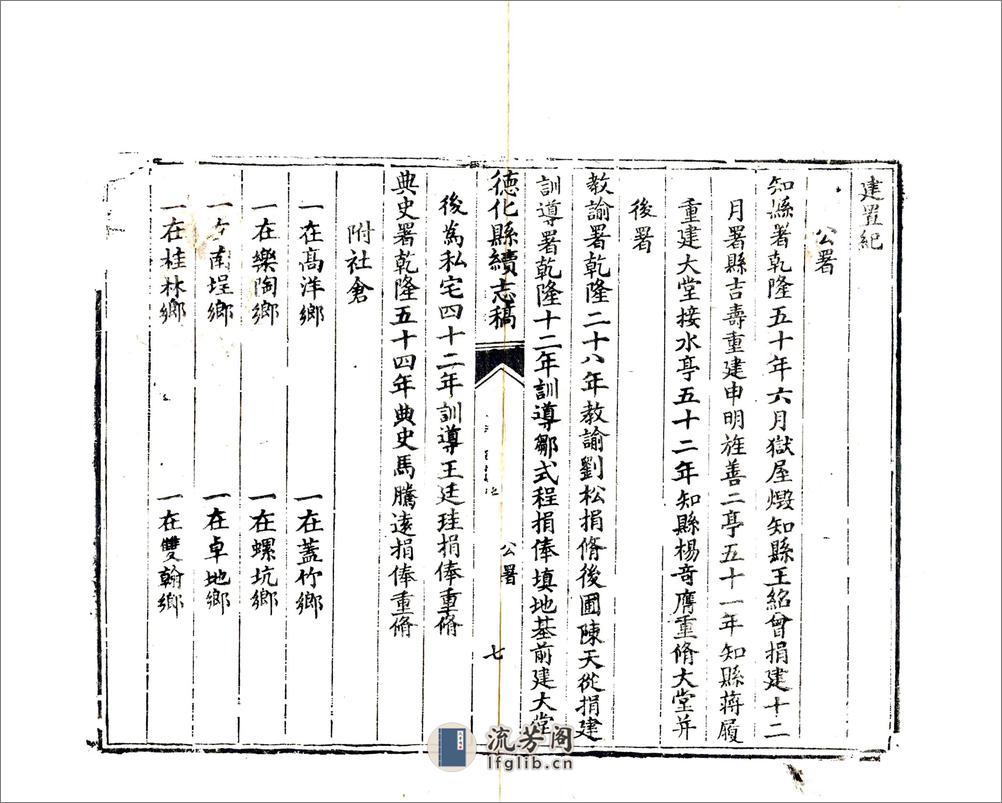 建置紀
公署
知縣署乾隆五十年六月獄屋燬知縣王紹曾捐建十二
月署縣吉壽重建申明旌善二亭五十一年知縣蔣履
重建大堂接水亭五十二年知縣楊奇膺重脩大堂并
後署
教諭署乾隆二十八年教諭劉松捐脩後圃陳天從捐建
訓導署乾隆十二年訓導鄒式程捐俸填地基前建大堂
德化縣續志稿
公署
七
後為私宅四十二年訓導王廷珪捐俸重脩
典史署乾隆五十四年典史馬騰遠捐俸重脩
附社倉
一在高洋鄉 一在蓋竹鄉
一在樂陶鄉 一在螺坑鄉
一在南埕鄉 一在卓地鄉
一在桂林鄉 一在雙翰鄉
流芳阁
lfglib.cn